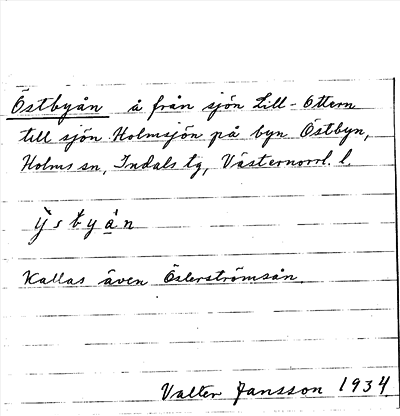 Östbyån å från sjön Lill-Ottern
till sjön Holmsjön på byn Östbyn,
Holms sn, Indals tg, Västernorrl. l.
ỳstbyån
Kallas även Österströmsån.
Valter Jansson 1934.